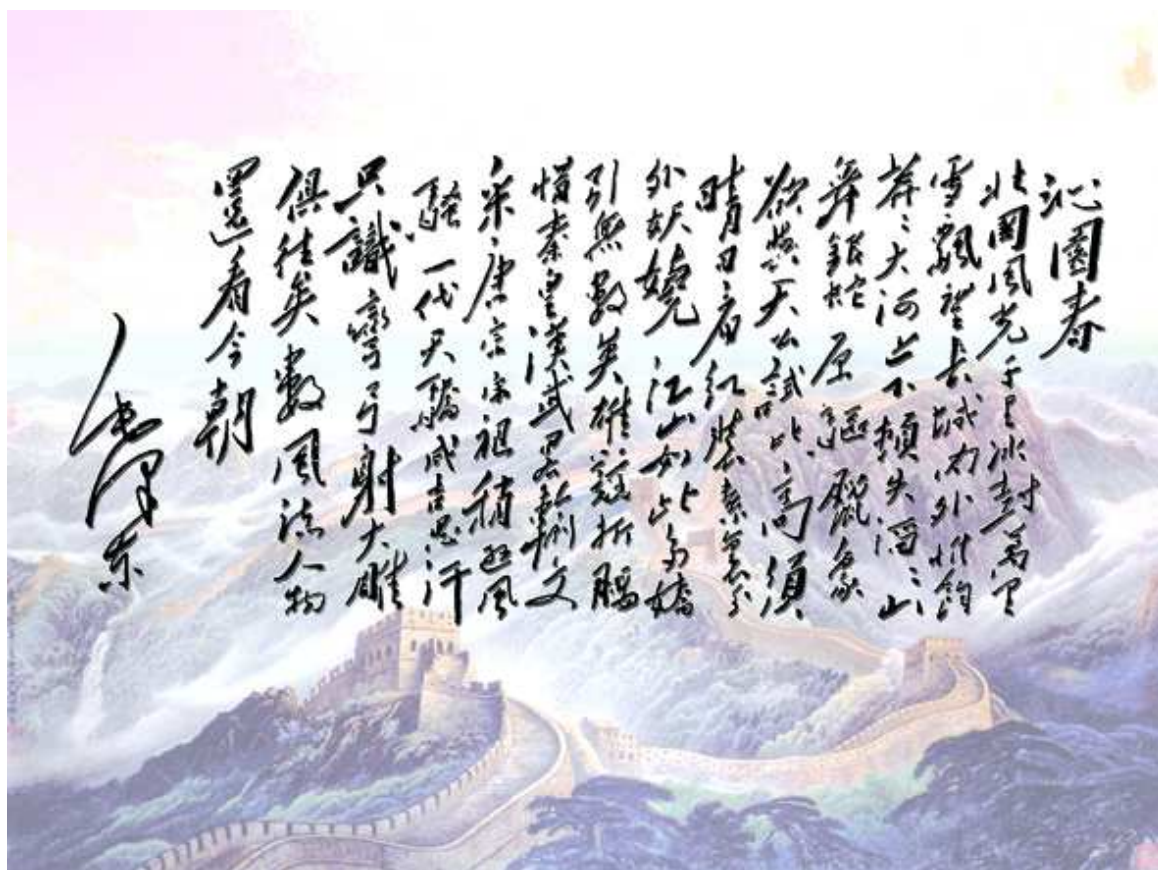 沁園春
北國風光千里冰封萬里
雪飄望长城内外惟餘
莽〻大河上下頓失滔〻山
舞銀蛇原驅蠟象
欲與天公試比高須
晴日看红装素裹分
外妖嬈江山如此多嬌
引無數英雄競折腰
惜秦皇漢武畧輸文
采唐宗宋祖稍遜風
騷一代天驕成吉思汗
只識彎弓射大雕
俱往矣數風流人物
還看今朝
毛泽东